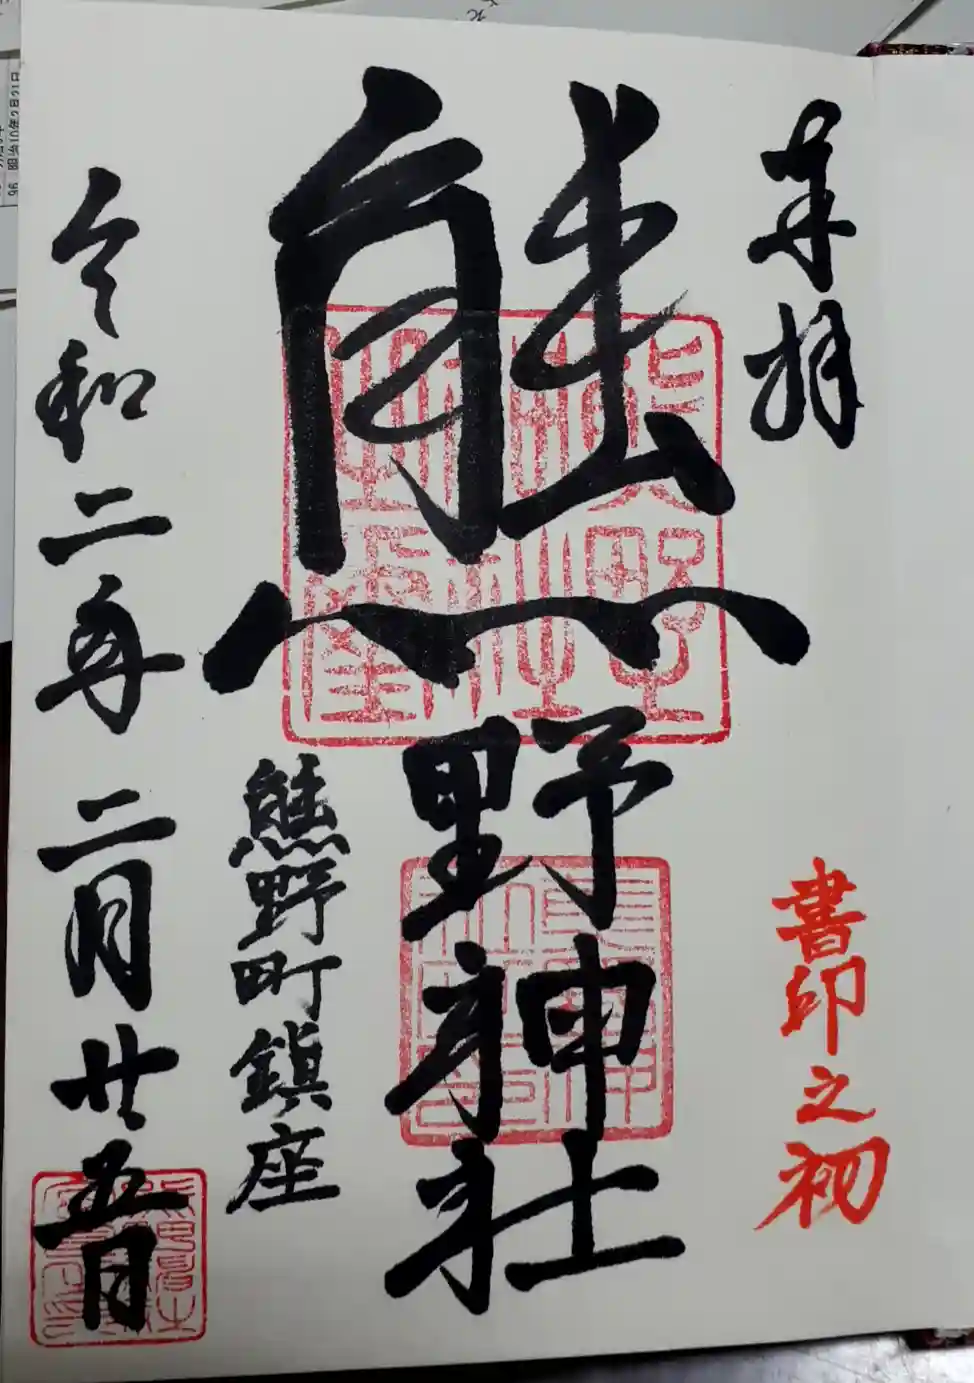 奉拝
書印之初
熊野神社
熊野町鎮座
令和二年二月廿五日